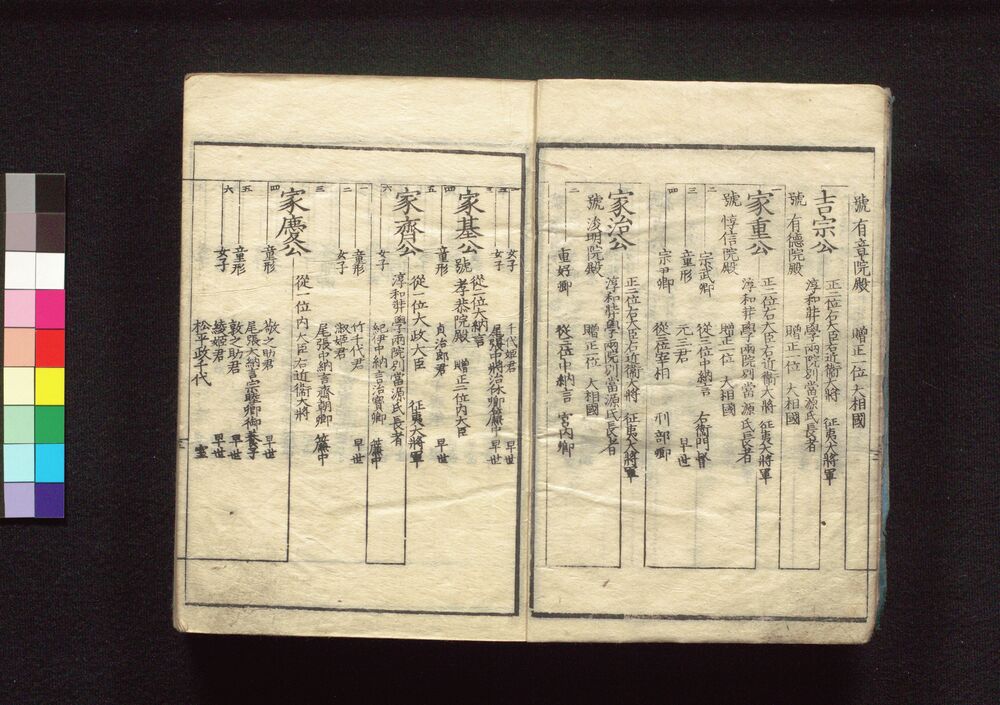 號 有章院殿 贈正一位 大相國
吉宗公
正二位右大臣右近衞大將 征夷大將軍
淳和奬學兩院別當源氏長者
號 有德院殿 贈正一位 大相國
一
家重公
正二位右大臣右近衞大將 征夷大將軍
淳和奬學兩院別當源氏長者
號 惇信院殿 贈正一位 大相國
二 宗武卿 從三位中納言 右衞門督
三 童形 元三君 早世
四 宗尹卿 從三位宰相 刑部卿
家治公
正二位右大臣右近衞大將 征夷大將軍
淳和奬學兩院別當源氏長者
號 浚明院殿 贈正一位 大相國
二 重好卿 從三位中納言 宮内卿
女子 千代姫君 早世
女子 尾張中將治休卿簾中 早世
四
家基公
從二位大納言
號 孝恭院殿 贈正二位内大臣
五 童形 貞治郎君 早世
家齊公
從一位太政大臣 征夷大將軍
淳和奬學兩院別當源氏長者
六 女子 紀伊中納言治寶卿 簾中
一 童形 竹千代君 早世
二 女子 淑姫君
尾張中納言齊朝卿 簾中
三
家慶公
從一位内大臣右近衞大將
四 童形 敬之助君 早世
尾張大納言宗睦卿御養子
五 童形 敦之助君 早世
六 女子 綾姫君 早世
松平政千代 室